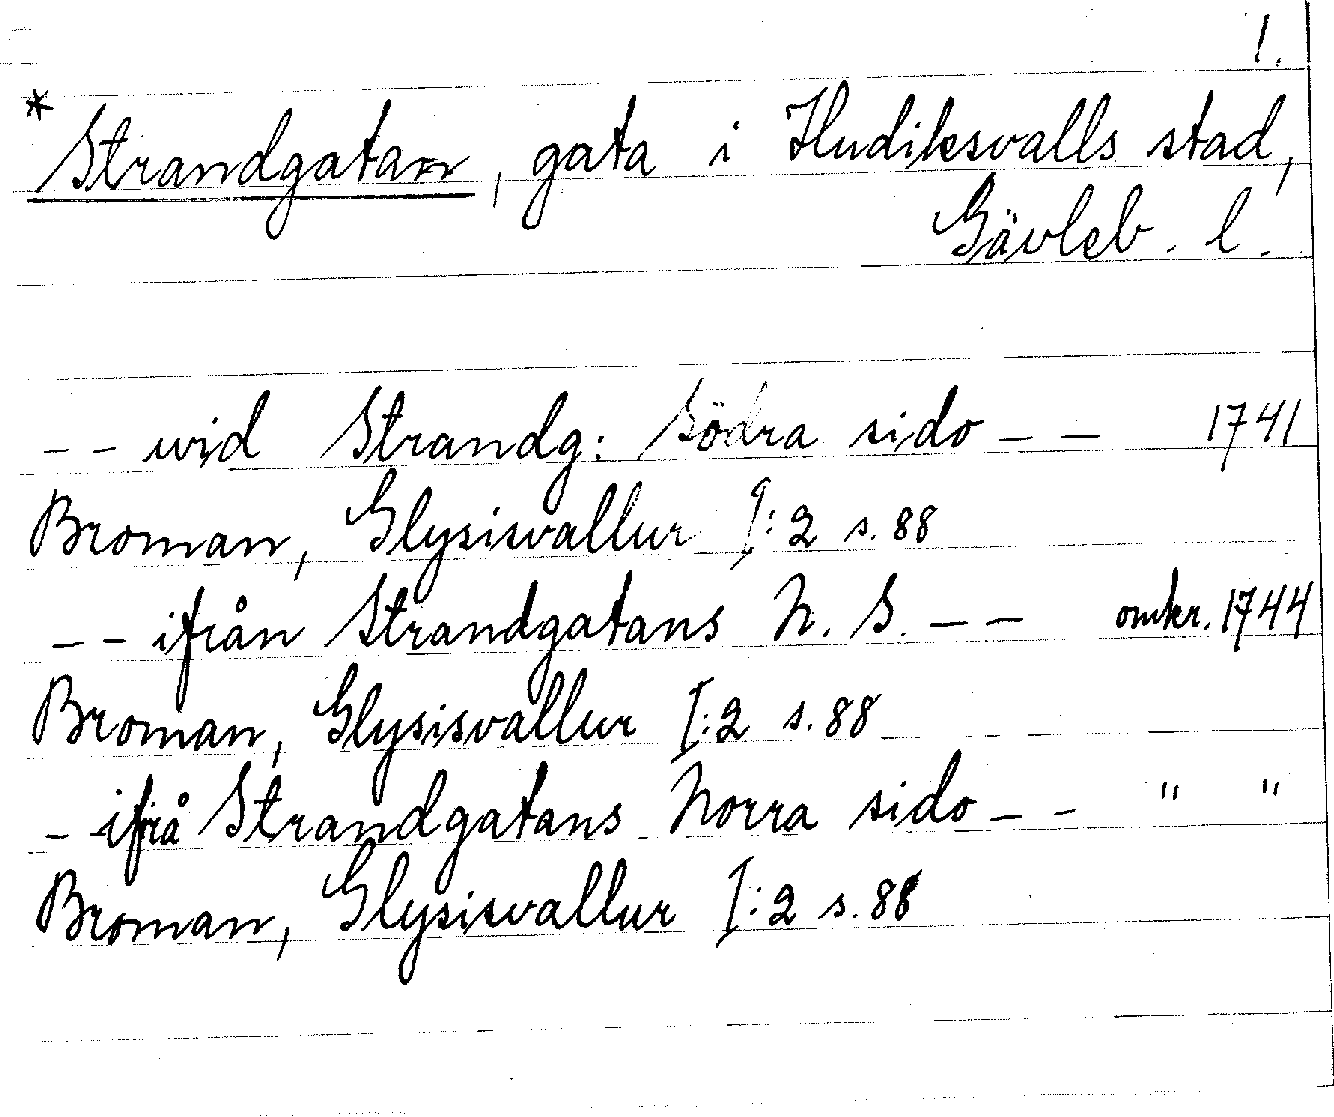 1.
* Strandgatan, gata i Hudiksvalls stad,
Gävleb. l.
- - wid Strandg: Södra sido - - 1741
Broman, Glysisvallur I:2 s. 88
- - ifrån Strandgatans N. S. - - omkr. 1744
Broman, Glysisvallur I:2 s. 88
- - ifrå Strandgatans Norra sido - - " "
Broman, Glysisvallur I:2 s. 88